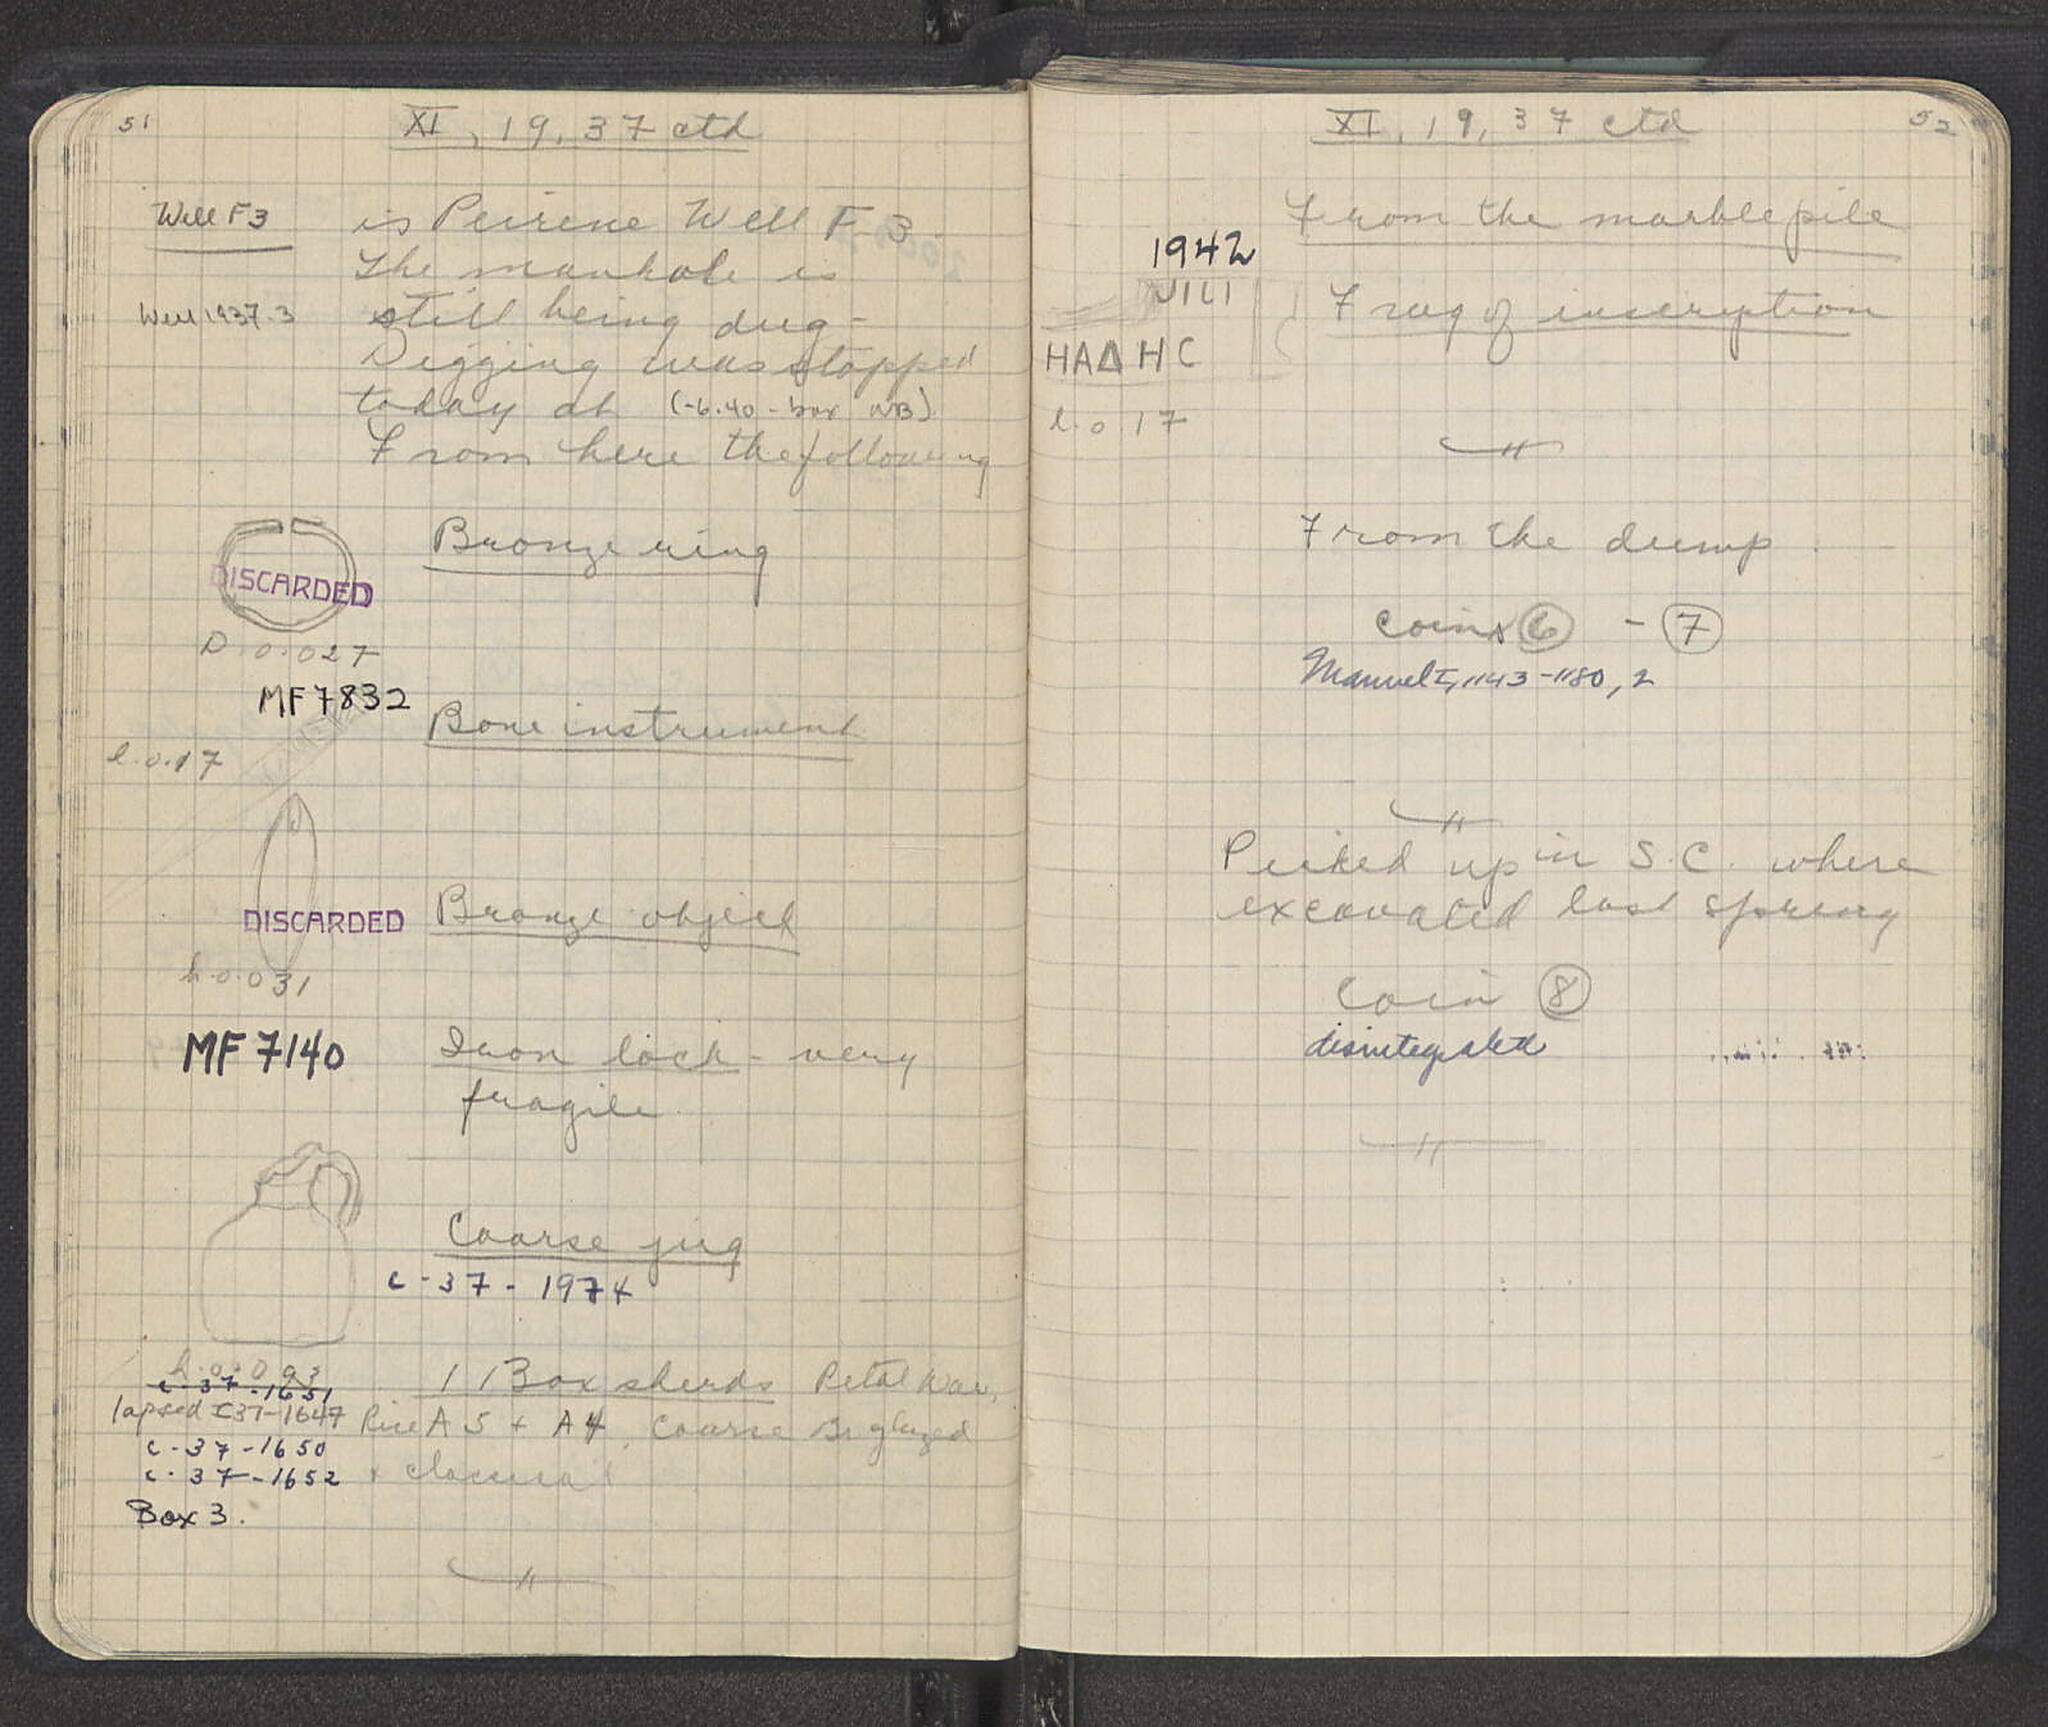 51
XI, 19, 37 ctd
Well F3
is Peirene Well F 3.
The manhole is
Well 1937.3
still being dug -
Digging was stopped
today at (-6.40 - box NB)
From here the following
Bronze ring
DISCARDED
D. 0.027
MF 7832
Bone instrument
l. 0.17
Bronze object
DISCARDED
h. 0.031
MF 7140
Iron lock - very
fragile
Coarse jug
C-37-1974
h. 0.093
1 Box sherds Petal Ware,
C-37-1651
lapsed C37-1647
Rice A 5 + A 4, Coarse glazed
C-37-1650
C-37-1652
+ classical
Box 3.
52
XI, 19, 37 ctd
From the marble pile
1942
Frag of inscription
ΗΑΔΗC
l. 0.17
From the dump
coins 6 - 7
Manuel I, 1143-1180, 2
Picked up in S.C. where
excavated last spring
Coin 8
disintegrated